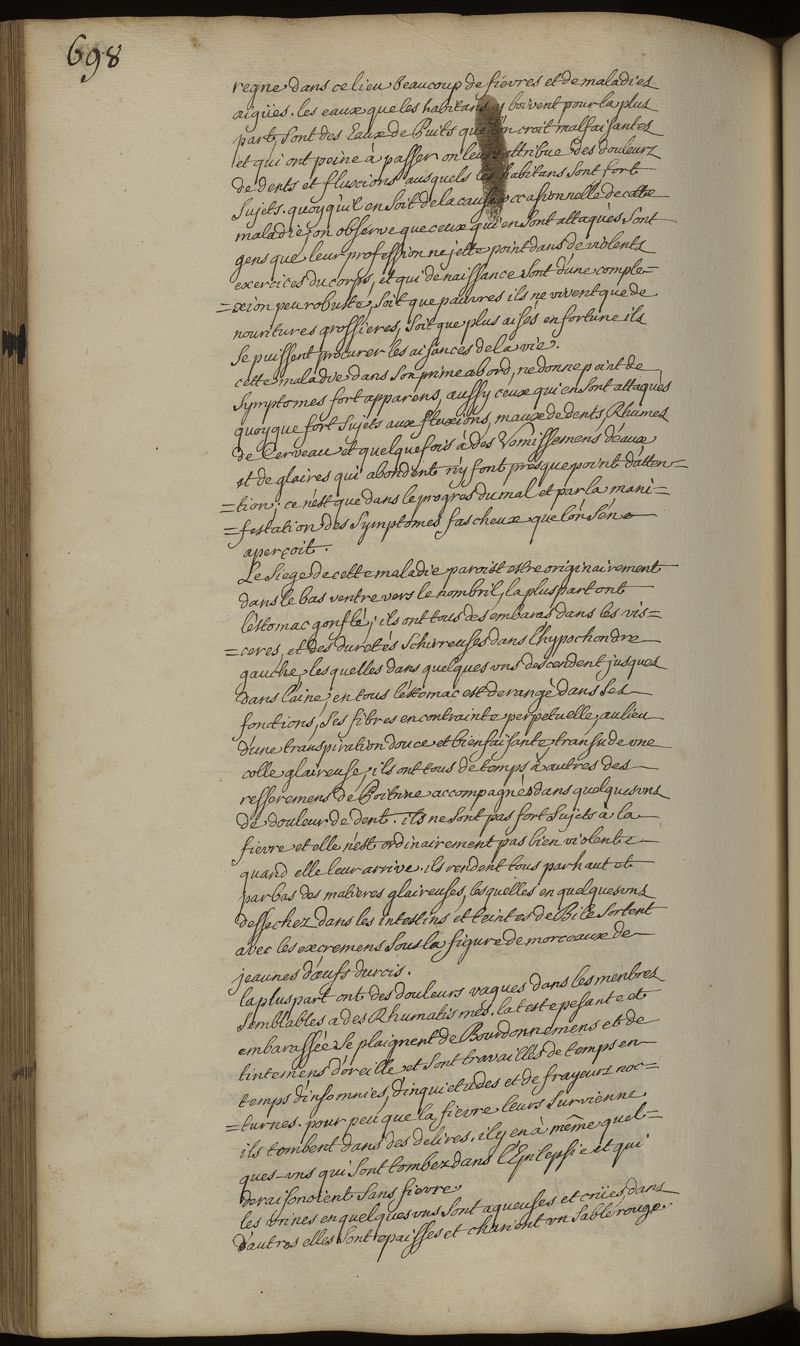 698
regne dans ce lieu beaucoup de fiévres et de maladies
aigües. les eaux que les habitans y boivent pour la plus
part, sont des Eaux de Puits que l'on croit malfaisantes
et qui ont peine à passer on leurs attribue des douleurs
de dents et fluxions ausquels les habitans sont fort
sujets. quoyqu'il en soit de la cause occasionnelle de cette
maladie, on observe que ceux qui en sont attaqués sont
gens que leur profession ne jette point dans de violents
exercices du corps, et qui de naissance sont d'une comple=
=xion peu robuste, soit que pauvres ils ne vivent que de
nouritures grossieres, soit que plus aisés en fortune ils
se puissent procurer les aisances de la vie.
cette maladie dans son prime abord, ne donne point de
symptomes fort apparens, aussy ceux qui en sont attaqués
quoyque fort sujets aux fluxions, maux de dents, Rhumes
de Cerveau et quelquefois à des Vomissemens d'eaux
et de glaires qui abondent n'y font presque point d'atten=
=tion; ce n'est que dans le progres du mal et par la mani=
=festation des symptomes fascheux que l'on s'en
aperçoit.
Le Siege de cette maladie paroist estre originairement
dans le bas ventre vers le nombril, la pluspart ont
l'éstomac gonflé; ils ont tous des embaras dans les vis=
=ceres, et des duretés schirreuses dans l'hypochondre
gauche, lesquelles dans quelques uns descendent jusques
dans l'aine; en tous l'éstomac est derangé dans ses
fonctions, ses fibres en contrainte perpetuelle, au lieu
d'une transpiration douce et bienfaisante, transude une
colle glaireuse; ils ont tous de temps à autres des
resserremens de Poitrine accompagnés dans quelques uns
de douleur de dent. ils ne sont pas fort sujets à la
fievre et elle n'est ordinairement pas bien violente
quand elle leur arrive. ils rendent tous par haut et
par bas des matieres glaireuses, lesquelles en quelques uns
dessechez dans les intestins et teintes de Bile sortent
avec les excremens sous la figure de morceaux de
jeaunes d'œufs durcis.
la pluspart ont des douleurs vagues dans les menbres
semblables a des Rhumatismes. la teste pesante et
embarassée se plaignent de Bourdonnemens et de
tintemens d'oreille et sont travaillés de temps en
temps d'insomnies, d'inquietudes et de frayeurs noc=
=turnes. pour peu que la fievre leurs survienne
ils tombent dans des delires. il y en à même quel=
ques-uns qui sont tombez dans l'Epilepsie et qui
deraisonoient sans fievre
les urines en quelques uns sont aqueuses et crües, dans
d'autres elles sont epaisses et charient un sable rouge.